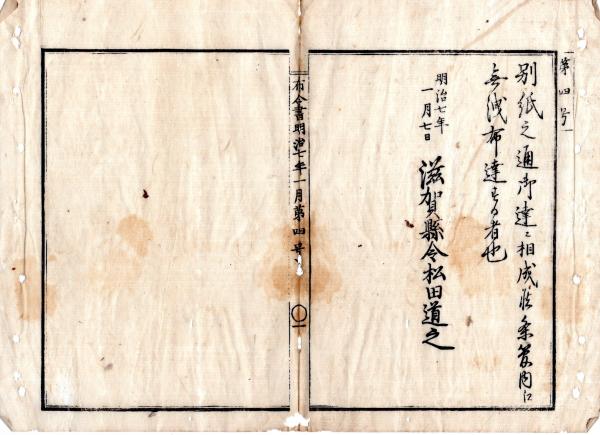 第四号
別紙之通御達ニ相成候条管内江
無洩布達する者也
明治七年
一月七日
滋賀縣令松田道之
布令書明治七年一月第四号
〇一